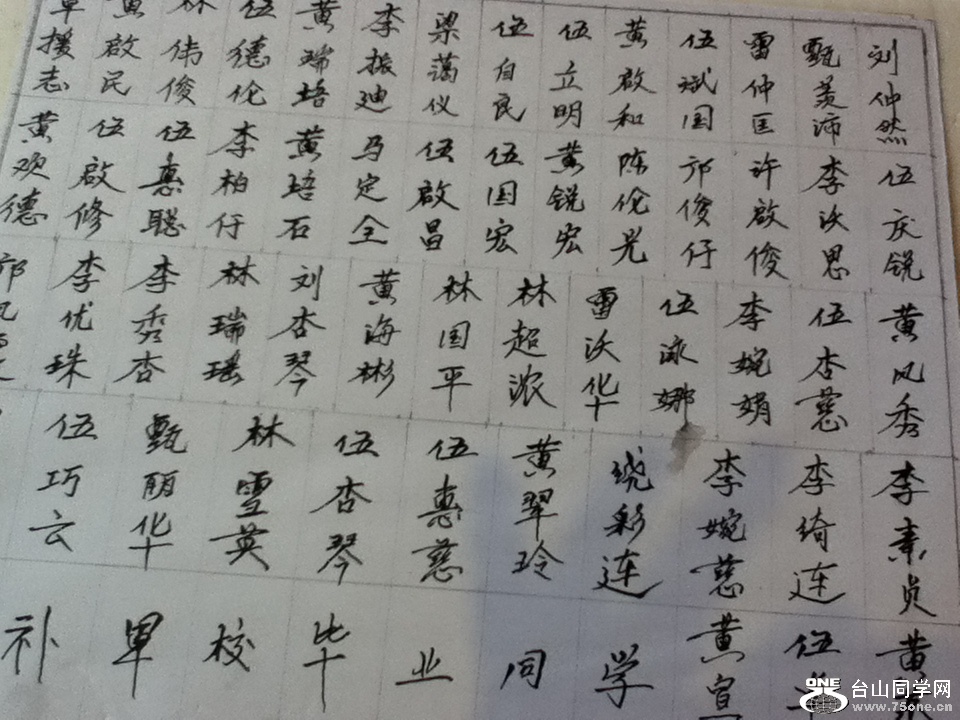 援志
黄啟民
林伟俊
伍德伦
黄瑞培
李振迪
梁蔼仪
伍自民
伍立明
黄啟和
伍斌国
雷仲匡
甄羡沛
刘仲然
黄欢德
伍啟修
伍惠聪
李柏仔
黄培石
马定全
伍啟昌
伍国宏
黄锐宏
陈伦光
邝俊仔
许啟俊
李沃思
伍庆锐
邝凤
李优珠
李秀杏
林瑞瑶
刘杏琴
黄海彬
林国平
林超浓
雷沃华
伍泳娜
李婉娟
伍杏慈
黄凤秀
伍巧云
甄丽华
林雪英
伍杏琴
伍惠慈
黄翠玲
娆彩连
李婉慈
李绮连
李素贞
补单校毕业同学
黄宣
伍
黄
ONE 台山同学网
www.75one.cn